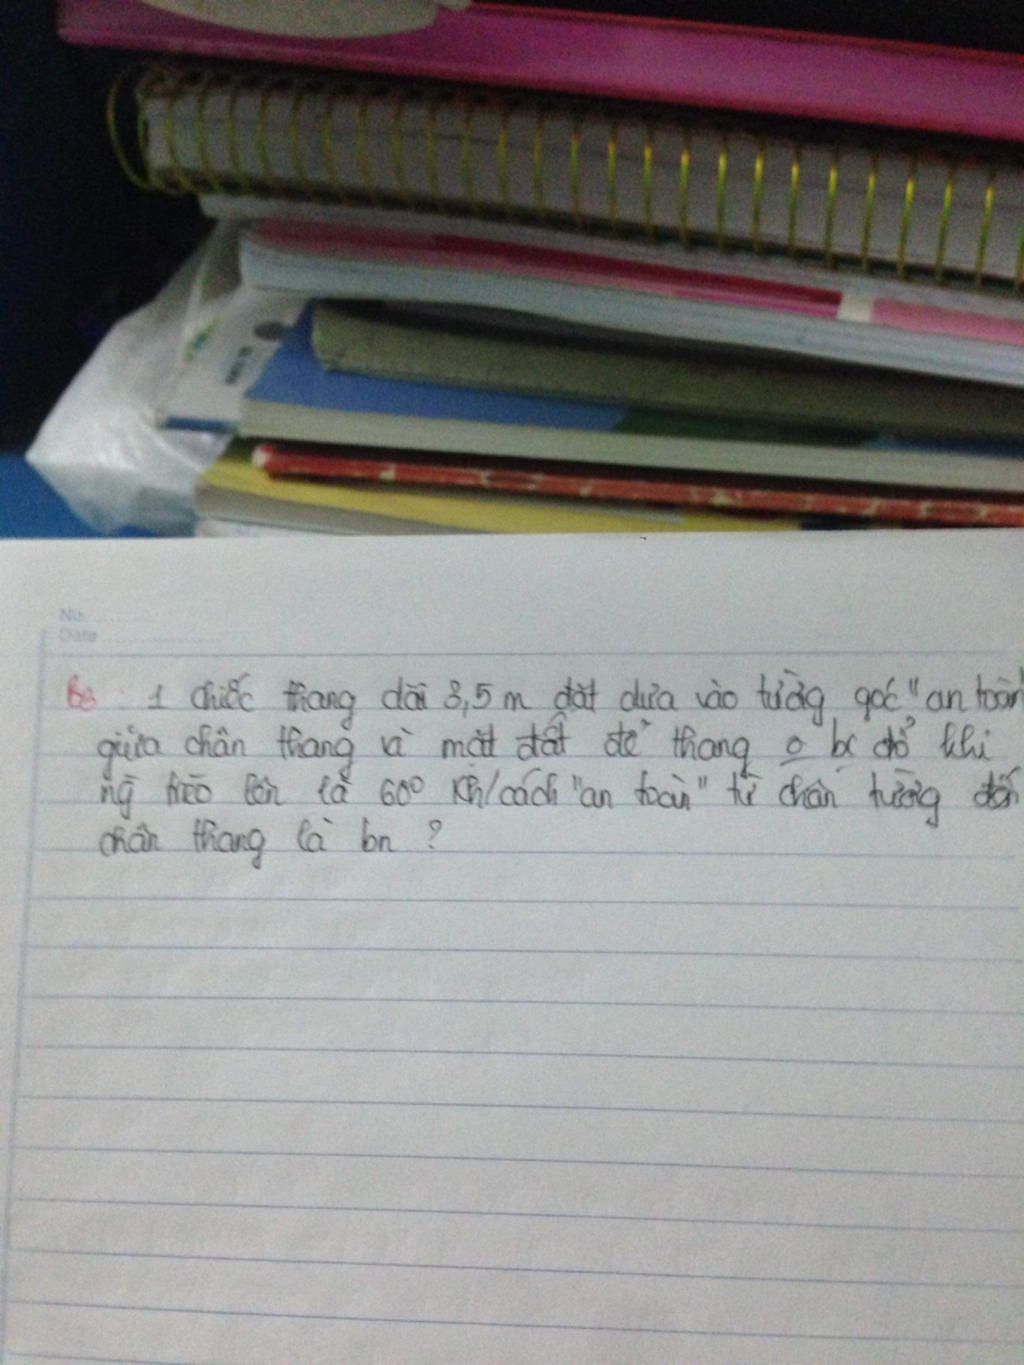 No.
Date
B3 : 1 chiếc thang dài 3,5 m đặt dựa vào tường góc "an toàn"
giữa chân thang và mặt đất để thang o bị đổ khi
ng trèo lên là 60° Kh/cách "an toàn" từ chân tường đến
chân thang là bn ?